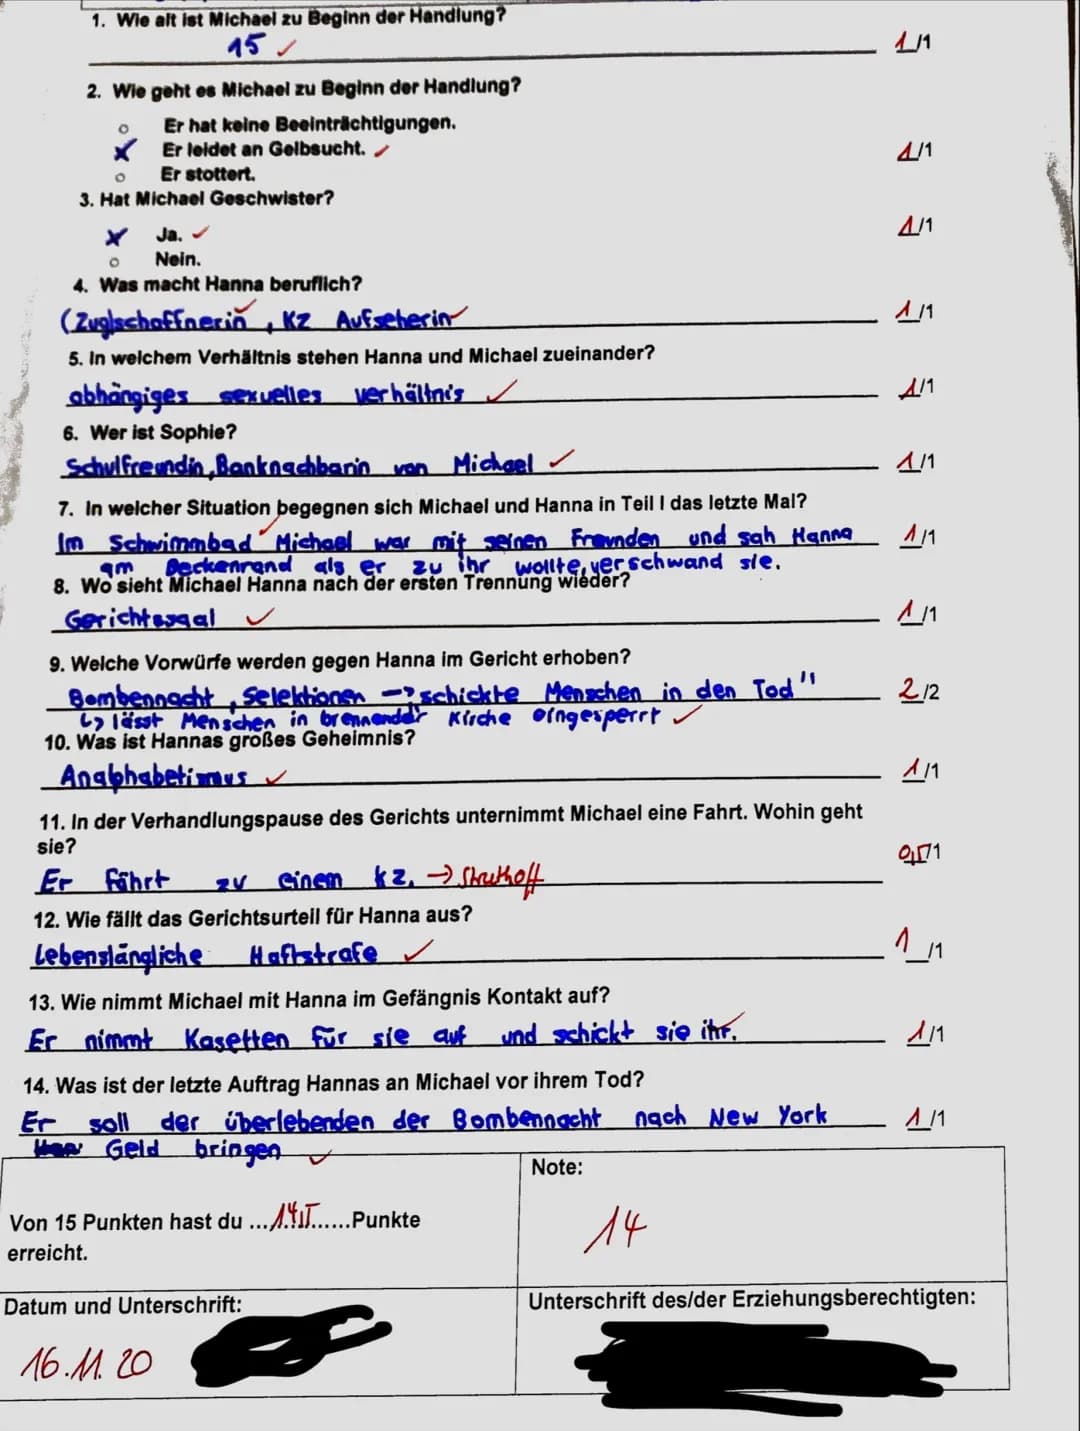 1. Wie alt ist Michael zu Beginn der Handlung?
15 ✓ 1/1
2. Wie geht es Michael zu Beginn der Handlung?
Er hat keine Beeinträchtigungen.
x Er leidet an Gelbsucht. ✓ 1/1
Er stottert.
3. Hat Michael Geschwister?
x Ja. ✓ 1/1
Nein.
4. Was macht Hanna beruflich?
(Zug)schaffnerin ✓, KZ Aufseherin ✓ 1/1
5. In welchem Verhältnis stehen Hanna und Michael zueinander?
abhängiges sexuelles verhältnis ✓ 1/1
6. Wer ist Sophie?
Schulfreundin, Banknachbarin von Michael ✓ 1/1
7. In welcher Situation begegnen sich Michael und Hanna in Teil I das letzte Mal?
Im Schwimmbad ✓ Michael war mit seinen Freunden und sah Hanna 1/1
am Beckenrand als er zu ihr wollte, verschwand sie.
8. Wo sieht Michael Hanna nach der ersten Trennung wieder?
Gerichtssaal ✓ 1/1
9. Welche Vorwürfe werden gegen Hanna im Gericht erhoben?
Bombennacht, Selektionen → schickte Menschen in den Tod 2/2
↳ lässt Menschen in brennender Kirche eingesperrt ✓
10. Was ist Hannas großes Geheimnis?
Analphabetismus ✓ 1/1
11. In der Verhandlungspause des Gerichts unternimmt Michael eine Fahrt. Wohin geht
sie?
Er fährt zu einem kz. → Struthoff 0,5/1
12. Wie fällt das Gerichtsurteil für Hanna aus?
Lebenslängliche Haftstrafe ✓ 1/1
13. Wie nimmt Michael mit Hanna im Gefängnis Kontakt auf?
Er nimmt Kasetten für sie auf und schickt sie ihr. ✓ 1/1
14. Was ist der letzte Auftrag Hannas an Michael vor ihrem Tod?
Er soll der überlebenden der Bombennacht nach New York 1/1
Geld bringen ✓
Note:
14
Von 15 Punkten hast du ...14,5......Punkte
erreicht.
Datum und Unterschrift:
Unterschrift des/der Erziehungsberechtigten:
16.11.20